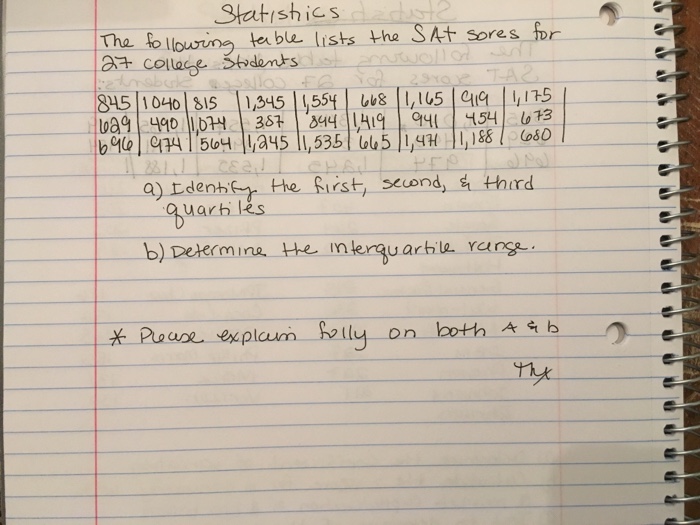 Statistics
The following table lists the SAt sores for
27 college Students
845 1040 815 1,345 1,554 668 1,165 919 1,175
629 490 1,074 387 844 1,419 941 454 673
696 974 564 1,245 1,535 665 1,471 1,188 680
a) Identify the first, second, & third
quartiles
b) Determine the interquartile range.
* Please explain fully on both A & b
Thx